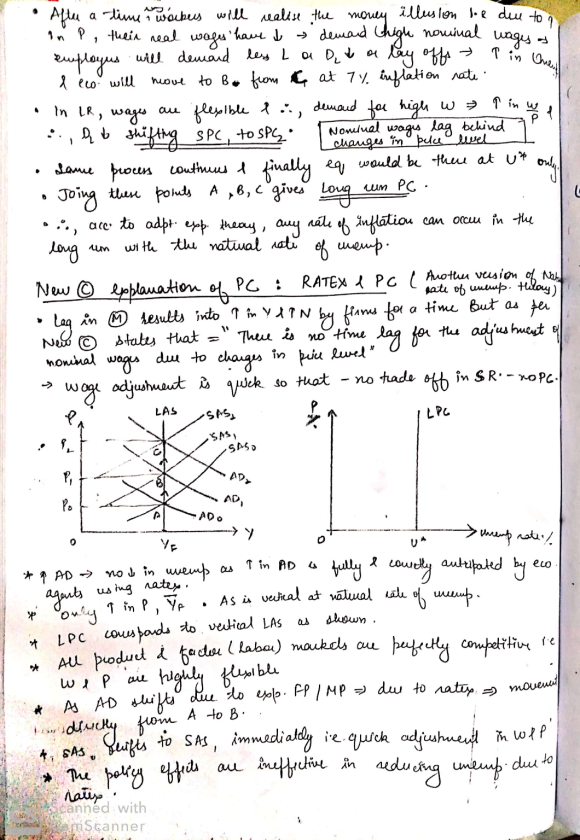 • After a time, workers will realise the money illusion i.e due to ↑
in P, their real wages have ↓ → demand high nominal wages →
employers will demand less L or DL ↓ or lay offs → ↑ in Unemp
& eco. will move to B from C, at 7% inflation rate.
• In LR, wages are flexible & ∴, demand for high W ⇒ ↑ in W/P &
∴, DL ↓ shifting SPC, to SPC2.
Nominal wages lag behind
changes in price level
• Same process continues & finally eq would be there at U* only.
• Joing these points A, B, C gives Long run PC.
• ∴, acc. to adpt. exp. theory, any rate of inflation can occur in the
long run with the natural rate of unemp.
New © explanation of PC : RATEX & PC ( Another version of Nat.
rate of unemp. theory)
• Lag in Ⓜ results into ↑ in Y & ↑ N by firms for a time But as per
New © states that = "There is no time lag for the adjustment of
nominal wages due to changes in price level"
→ wage adjustment is quick so that – no trade off in SR. – no PC.
P
LAS
SAS2
SAS1
SAS0
P2
P1
P0
C
B
A
AD2
AD1
AD0
O
YF
Y
LPC
O
U*
Unemp rate %
* ↑ AD → no ↓ in unemp as ↑ in AD is fully & correctly anticipated by eco.
agents using ratex.
* Only ↑ in P, YF. • AS is vertical at natural rate of unemp.
* LPC corresponds to vertical LAS as shown.
* All product & factor (labor) markets are perfectly competitive i.e
W & P are highly flexible
* As AD shifts due to exp. FP / MP ⇒ due to ratex ⇒ movement
directly from A to B.
* SAS0 shifts to SAS1 immediately i.e. quick adjustment in W & P
* The policy effects are ineffective in reducing unemp. due to
ratex.
Scanned with
CamScanner